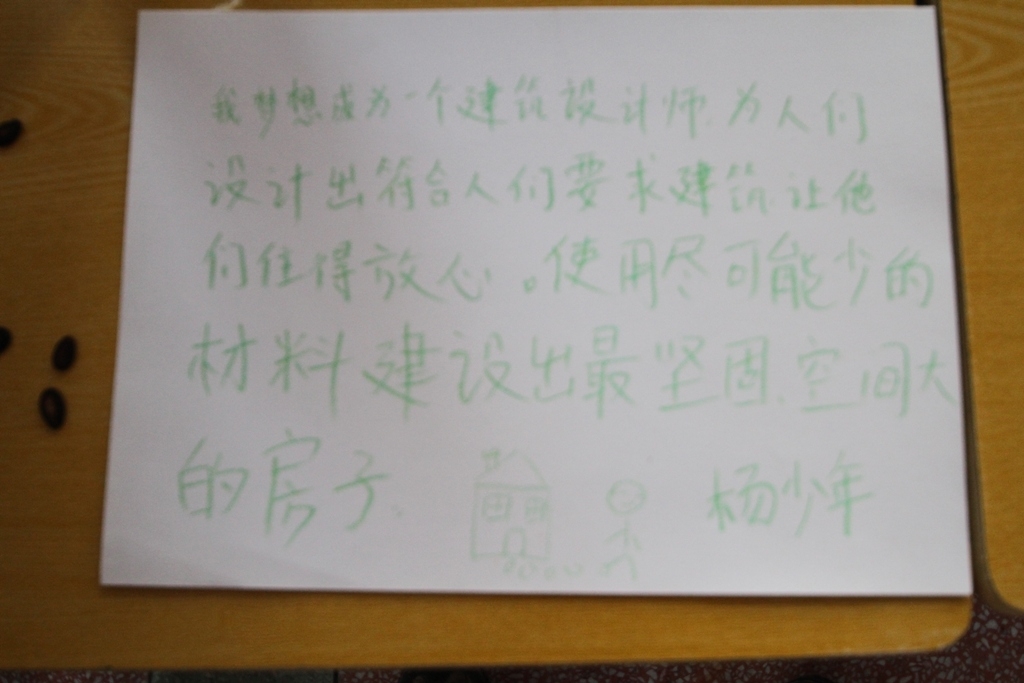 我梦想成为一个建筑设计师,为人们
设计出符合人们要求建筑,让他
们住得放心。使用尽可能少的
材料建设出最坚固、空间大
的房子。
杨少年